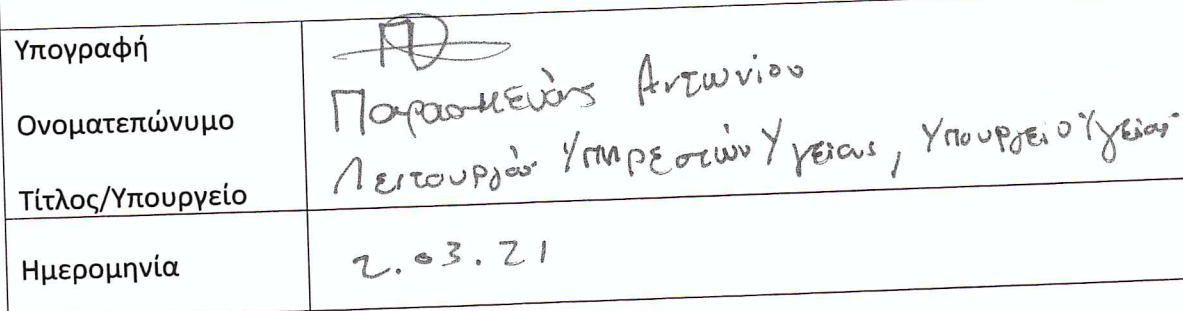 Υπογραφή
Ονοματεπώνυμο Παρασκευάς Αντωνίου
Τίτλος/Υπουργείο Λειτουργός Υπηρεσιών Υγείας, Υπουργείο Υγείας
Ημερομηνία 2.03.21